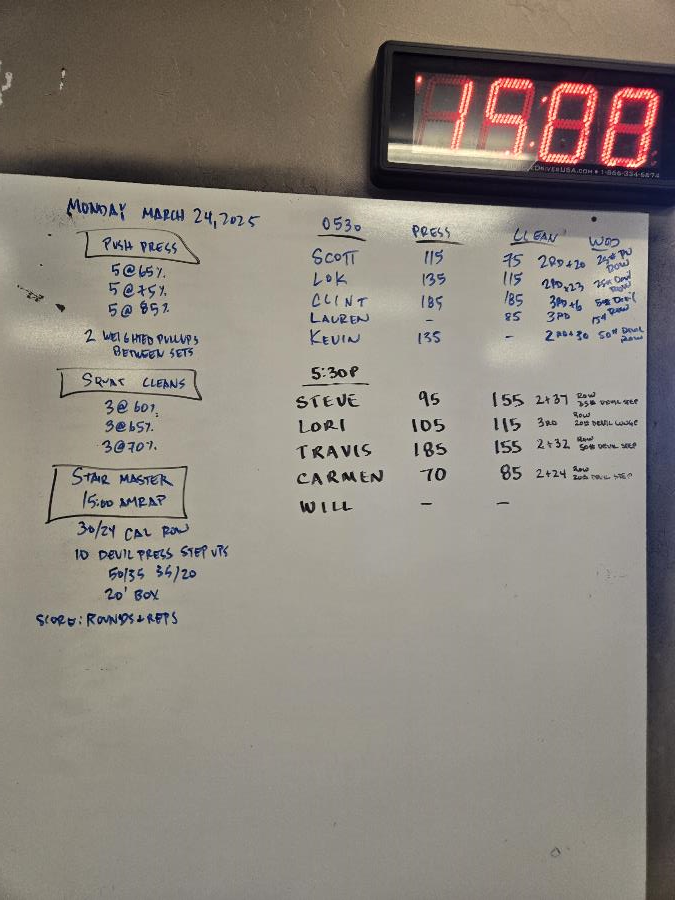 15:00
DRIVERUSA.COM • 1-866-334-5674
MONDAY MARCH 24, 2025
PUSH PRESS
5@65%
5@75%
5@85%
2 WEIGHTED PULLUPS
BETWEEN SETS
SQUAT CLEANS
3@60%
3@65%
3@70%
STAIR MASTER
15:00 AMRAP
30/24 CAL ROW
10 DEVIL PRESS STEP UPS
50/35 35/20
20' BOX
SCORE: ROUNDS + REPS
0530 PRESS CLEAN WOD
SCOTT 115 75 2RD+20 ROW
LOK 135 115 2RD+23 ROW
CLINT 185 185 3RD+6 ROW
LAUREN - 85 3RD
KEVIN 135 - 2RD+30 50# DEVIL ROW
5:30P
STEVE 95 155 2+37 ROW 35# DEVIL STEP
LORI 105 115 3RD ROW 20# DEVIL LUNGE
TRAVIS 185 155 2+32 ROW 50# DEVIL STEP
CARMEN 70 85 2+24 ROW 20# DEVIL STEP
WILL - -